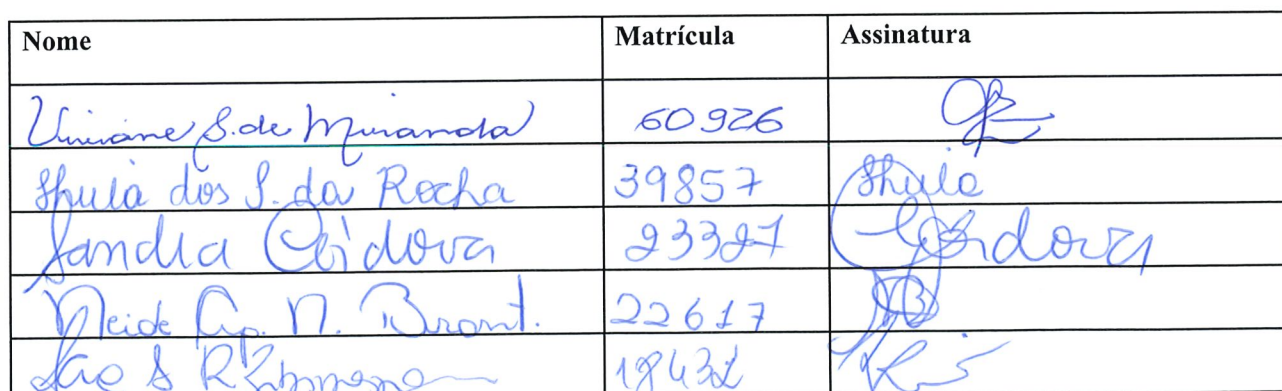 Nome Matrícula Assinatura
Viviane S. de Miranda 60926
Shula dos S. da Rocha 39857 Shula
Sandra Córdova 23327 Córdova
Neide Ap. N. Brant. 22617
S R